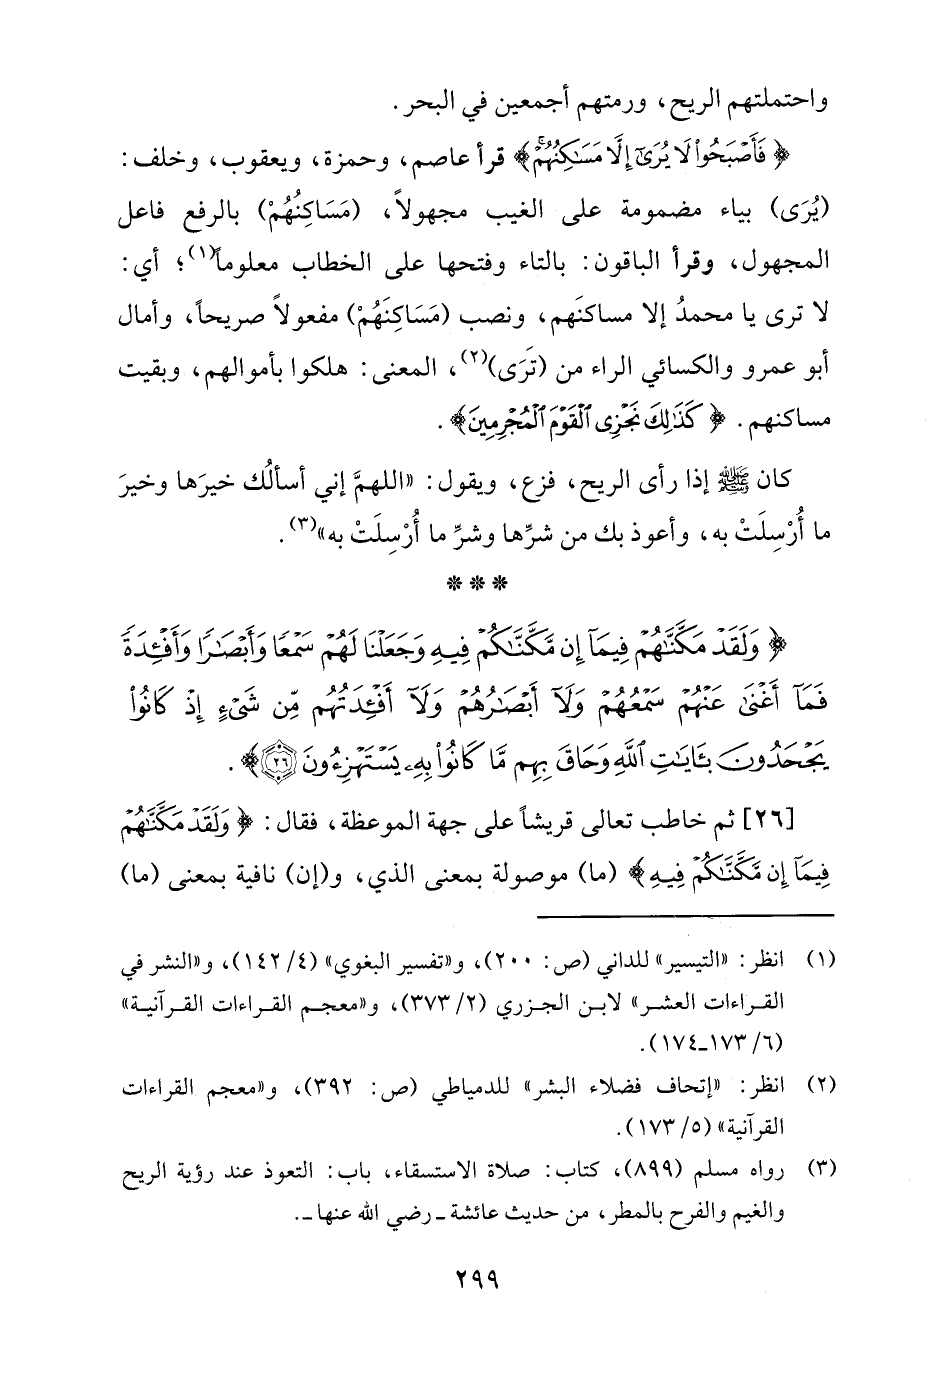 واحتملتهم الريح، ورمتهم أجمعين في البحر.
﴿ فَأَصْبَحُواْ لَا يُرَىٰٓ إِلَّا مَسَٰكِنُهُمْۚ ﴾ قرأ عاصم، وحمزة، ويعقوب، وخلف:
(يُرَى) بياء مضمومة على الغيب مجهولاً، (مَسَاكِنُهُمْ) بالرفع فاعل
المجهول، وقرأ الباقون: بالتاء وفتحها على الخطاب معلوماً(١)؛ أي:
لا ترى يا محمدُ إلا مساكنَهم، ونصب (مَسَاكِنَهُمْ) مفعولاً صريحاً، وأمال
أبو عمرو والكسائي الراء من (تَرَى)(٢)، المعنى: هلكوا بأموالهم، وبقيت
مساكنهم. ﴿ كَذَٰلِكَ نَجْزِى ٱلْقَوْمَ ٱلْمُجْرِمِينَ﴾.
كان ﷺ إذا رأى الريح، فزع، ويقول: «اللهمَّ إني أسألُك خيرَها وخيرَ
ما أُرْسِلَتْ به، وأعوذ بك من شرِّها وشرِّ ما أُرْسِلَتْ به»(٣).
***
﴿ وَلَقَدْ مَكَّنَّٰهُمْ فِيمَآ إِن مَّكَّنَّٰكُمْ فِيهِ وَجَعَلْنَا لَهُمْ سَمْعًا وَأَبْصَٰرًا وَأَفْـِٔدَةً
فَمَآ أَغْنَىٰ عَنْهُمْ سَمْعُهُمْ وَلَآ أَبْصَٰرُهُمْ وَلَآ أَفْـِٔدَتُهُم مِّن شَىْءٍ إِذْ كَانُواْ
يَجْحَدُونَ بِـَٔايَٰتِ ٱللَّهِ وَحَاقَ بِهِم مَّا كَانُواْ بِهِۦ يَسْتَهْزِءُونَ ٢٦﴾.
[٢٦] ثم خاطب تعالى قريشاً على جهة الموعظة، فقال: ﴿ وَلَقَدْ مَكَّنَّٰهُمْ
فِيمَآ إِن مَّكَّنَّٰكُمْ فِيهِ ﴾ (ما) موصولة بمعنى الذي، و(إن) نافية بمعنى (ما)
(١) انظر: «التيسير» للداني (ص: ٢٠٠)، و«تفسير البغوي» (٤/ ١٤٢)، و«النشر في
القراءات العشر» لابن الجزري (٢/ ٣٧٣)، و«معجم القراءات القرآنية»
(٦/ ١٧٣_١٧٤).
(٢) انظر: «إتحاف فضلاء البشر» للدمياطي (ص: ٣٩٢)، و«معجم القراءات
القرآنية» (٥/ ١٧٣).
(٣) رواه مسلم (٨٩٩)، كتاب: صلاة الاستسقاء، باب: التعوذ عند رؤية الريح
والغيم والفرح بالمطر، من حديث عائشة ـ رضي الله عنها ـ.
٢٩٩